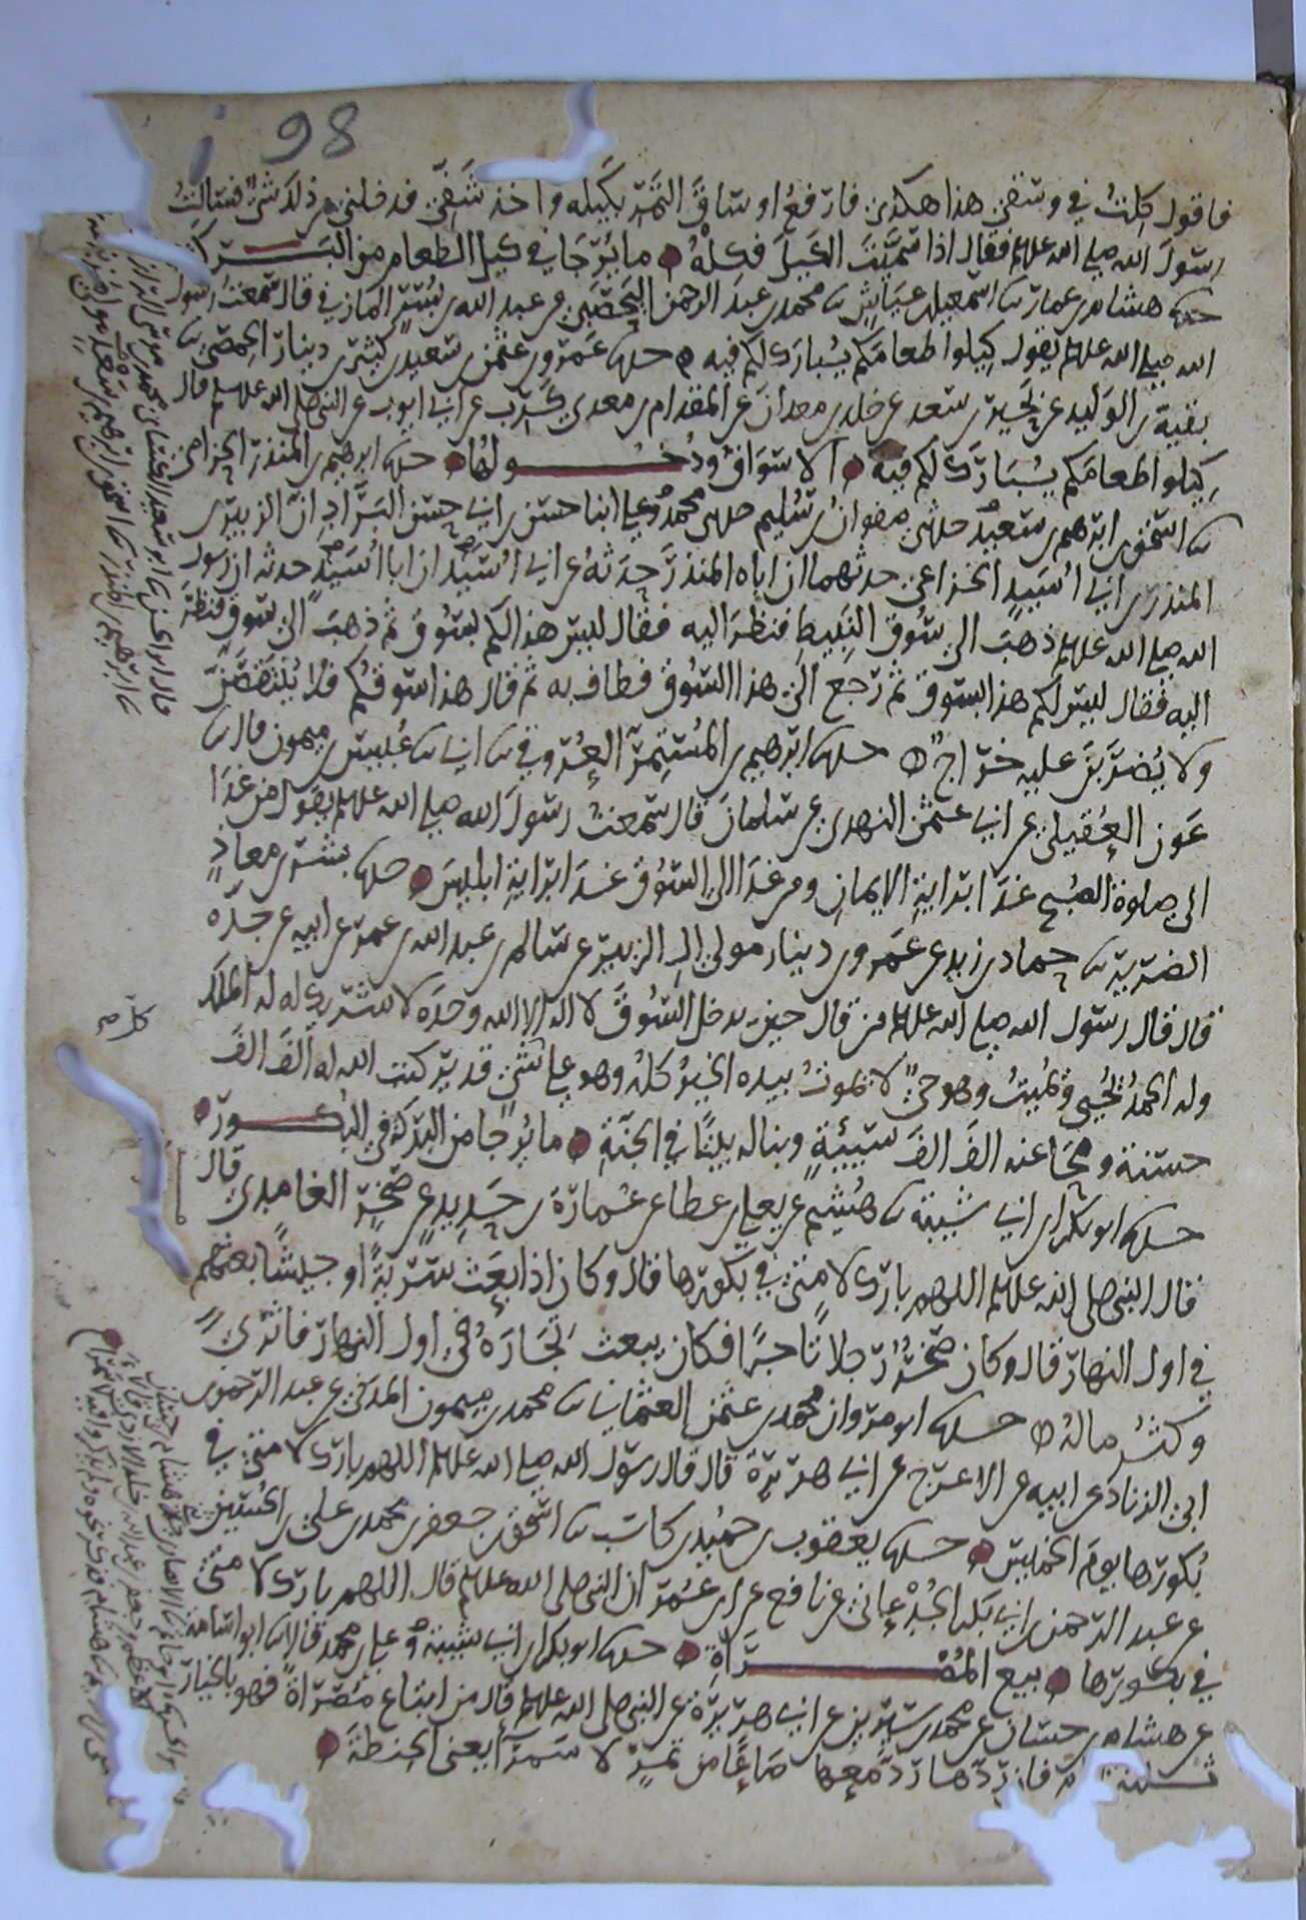 98
فاقول كلت في وسقي هذا هكذى فارفع اوساق التمر بكيله واخذ شفي فدخلني من ذلك شي فسالت
رسول الله صلى الله علـيـه فقال اذا سميت الكيل فكله ما يرجا في كيل الطعام من البركة
هشام بن عمار نا اسمعيل بن عياش نا محمد بن عبد الرحمن اليحصبي عن عبد الله بن بسر المازني قال سمعت رسول
الله صلى الله علـيـه يقول كيلوا طعامكم يبارك لكم فيه حدثنا عمرو بن عثمن بن سعيد بن كثير بن دينار الحمصي نا
بقية بن الوليد عن بحير بن سعد عن خلد بن معدان عن المقدام بن معدي كرب عن ابي ايوب عن النبي صلى الله علـيـه قال
كيلوا طعامكم يبارك لكم فيه الاسواق ودخولها حدثنا ابرهيم بن المنذر الحزامي
نا اسحق بن ابرهيم بن سعيد حدثني صفوان بن سليم حدثني محمد وعلي ابنا حسن بن ابي حسن البراد ان الزبير بن
المنذر بن ابي اسيد الخزاعي حدثهما ان اباه المنذر حدثه عن ابي اسيد ان ابا اسيد حدثه ان رسول
الله صلى الله علـيـه ذهب الى سوق النبيط فنظر اليه فقال ليس هذا لكم بسوق ثم ذهب الى سوق فنظر
اليه فقال ليس لكم هذا بسوق ثم رجع الى هذا السوق فطاف به ثم قال هذا سوقكم فلا ينتقصن
ولا يضربن عليه خراج حدثنا ابرهيم بن المستمر العروقي نا ابي نا عبيس بن ميمون قال نا
عون العقيلي عن ابي عثمن النهدي عن سلمان قال سمعت رسول الله صلى الله علـيـه يقول من غدا
الى صلوة الصبح غدا براية الايمان ومن غدا الى السوق غدا براية ابليس حدثنا بشر بن معاذ
الضرير نا حماد بن زيد عن عمرو بن دينار مولى ال الزبير عن سالم بن عبد الله بن عمر عن ابيه عن جده
قال قال رسول الله صلى الله علـيـه من قال حين يدخل السوق لا اله الا الله وحده لا شريك له له الملك
وله الحمد يحيي ويميت وهو حي لا يموت بيده الخير كله وهو على شي قدير كتب الله له الف الف
حسنة ومحا عنه الف الف سيئة وبنا له بيتا في الجنة ما يرجا من البركة في البكور
حدثنا ابو بكر بن ابي شيبة نا هشيم عن يعلى بن عطا عن عمارة بن حديد عن صخر الغامدي قال
قال النبي صلى الله علـيـه اللهم بارك لامتي في بكورها قال وكان اذا بعث سرية او جيشا بعثهم
في اول النهار قال وكان صخر رجلا تاجرا فكان يبعث تجاره في اول النهار فاثرى
وكثر ماله حدثنا ابو مروان محمد بن عثمن العثماني نا محمد بن ميمون المدني عن عبد الرحمن بن
ابي الزناد عن ابيه عن الاعرج عن ابي هريرة قال قال رسول الله صلى الله علـيـه اللهم بارك لامتي في
بكورها يوم الخميس حدثنا يعقوب بن حميد بن كاسب نا اسحق بن جعفر بن محمد بن علي بن الحسين
عن عبد الرحمن بن ابي بكر الجدعاني عن نافع عن ابن عمر ان النبي صلى الله علـيـه قال اللهم بارك لامتي
في بكورها بيع المصراة حدثنا ابو بكر بن ابي شيبة وعلي بن محمد قالا نا ابو اسامة
عن هشام بن حسان عن محمد بن سيرين عن ابي هريرة عن النبي صلى الله علـيـه قال من ابتاع مصراة فهو بالخيار
ثلثة فان ردها رد معها صاعا من تمر لا سمرا يعني الحنطة
كل